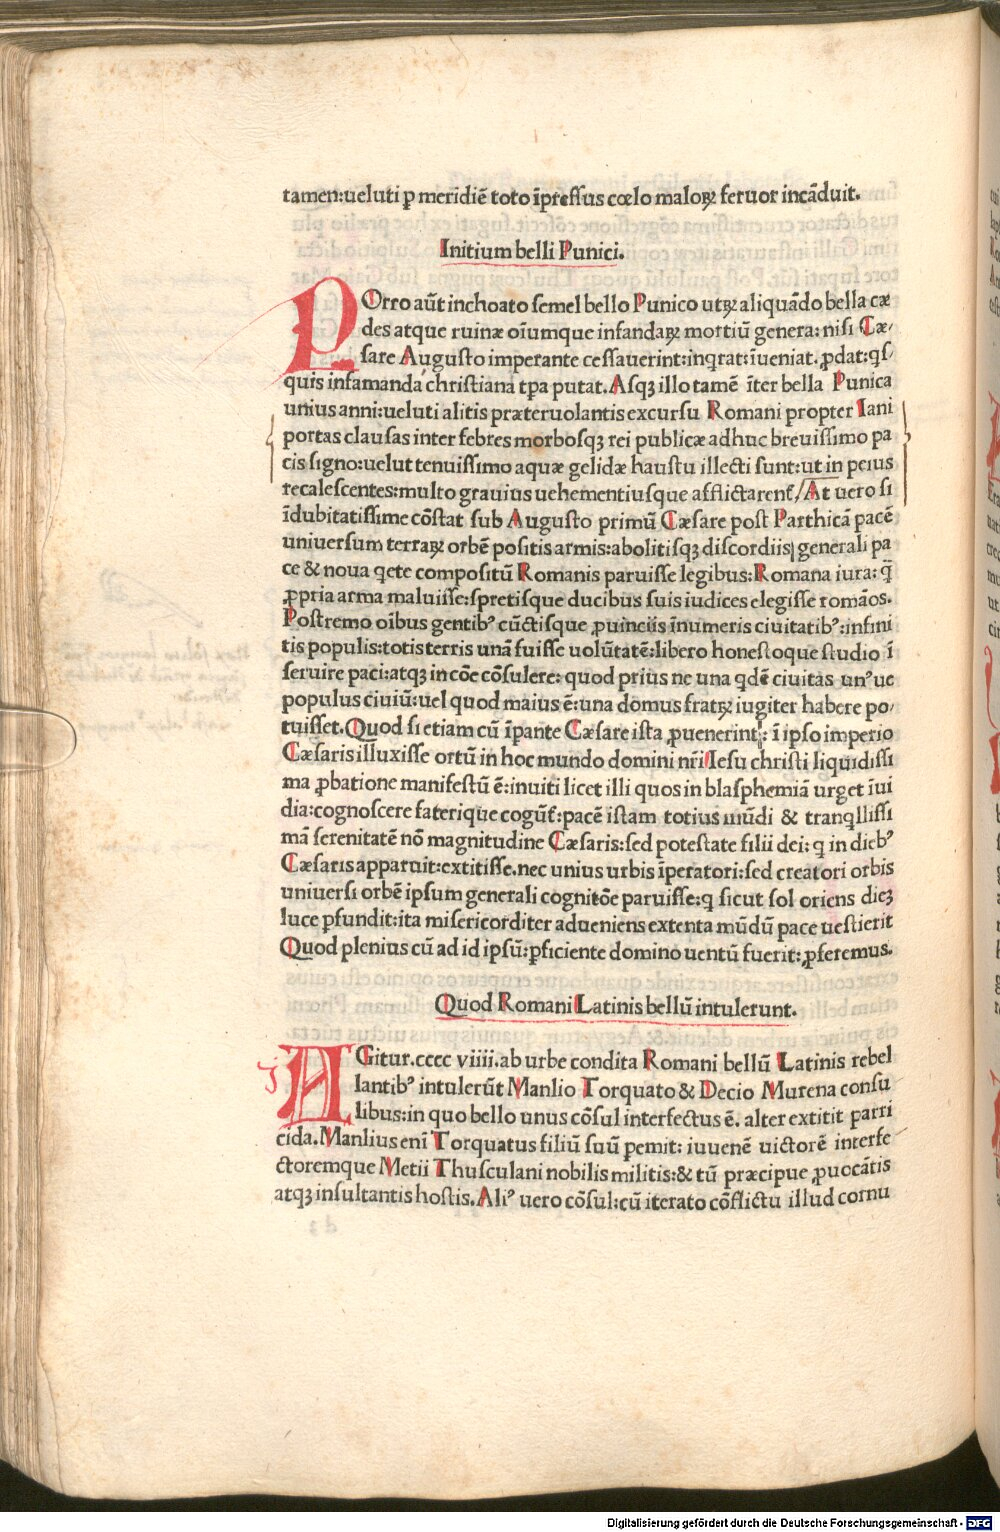 tamen:ueluti ꝑ meridiē toto īpressus cœlo maloꝝ feruor incāduit.
Initium belli Punici.
POrro aūt inchoato semel bello Punico utꝝ aliquādo bella cæ
des atque ruinæ oīumque infandaꝝ mortiū genera: nisi Cæ-
sare Augusto imperante cessauerint:inqrat:īueniat.ꝓdat:qs-
quis infamanda christiana tꝑa putat.Asqꝫ illo tamē īter bella Punica
unius anni:ueluti alitis præteruolantis excursu Romani propter Iani
portas clausas inter febres morbosqꝫ rei publicæ adhuc breuissimo pa
cis signo:uelut tenuissimo aquæ gelidæ haustu illecti sunt:ut in peius
recalescentes:multo grauius uehementiusque afflictarent̄/At uero si
īdubitatissime cōstat sub Augusto primū Cæsare post Parthicā pacē
uniuersum terraꝝ orbē positis armis:abolitisqꝫ discordiis generali pa
ce & noua qete compositū Romanis paruisse legibus:Romana iura: q̄
ꝓpria arma maluisse:spretisque ducibus suis iudices elegisse romāos.
Postremo oībus gentibꝰ cūctisque ꝓuinciis īnumeris ciuitatibꝰ:infini
tis populis:totis terris unā fuisse uolūtatē:libero honestoque studio ī
seruire paci:atqꝫ in cōe cōsulere: quod prius ne una qdē ciuitas unꝰ ue
populus ciuiū:uel quod maius ē:una domus fratꝝ iugiter habere po-
tuisset.Quod si etiam cū īpante Cæsare ista ꝓuenerint: ī ipso imperio
Cæsaris illuxisse ortū in hoc mundo domini nr̄i Iesu christi liquidissi
ma ꝓbatione manifestū ē:inuiti licet illi quos in blasphemiā urget īui
dia:cognoscere faterique cogūt̄:pacē istam totius mūdi & tranqllissi
mā serenitatē nō magnitudine Cæsaris:sed potestate filii dei: q in diebꝰ
Cæsaris apparuit:extitisse.nec unius urbis īperatori:sed creatori orbis
uniuersi orbē ipsum generali cognitōe paruisse:q sicut sol oriens dieꝫ
luce ꝑfundit:ita misericorditer adueniens extenta mūdū pace uestierit
Quod plenius cū ad id ipsū:ꝑficiente domino uentū fuerit: ꝓferemus.
Quod Romani Latinis bellū intulerunt.
AGitur.cccc viiii.ab urbe condita Romani bellū Latinis rebel
lantibꝰ intulerūt Manlio Torquato & Decio Murena consu
libus:in quo bello unus cōsul interfectus ē. alter extitit parri
cida.Manlius enī Torquatus filiū suū pemit: iuuenē uictorē interfe
ctoremque Metii Thusculani nobilis militis:& tū præcipue ꝓuocātis
atqꝫ insultantis hostis.Aliꝰ uero cōsul:cū iterato cōflictu illud cornu
Digitalisierung gefördert durch die Deutsche Forschungsgemeinschaft - DFG